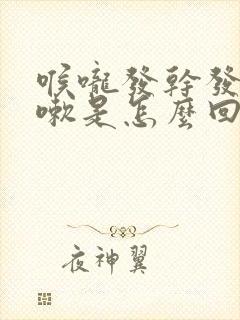 喉嚨發幹發
嗽是怎麼回
夜神翼